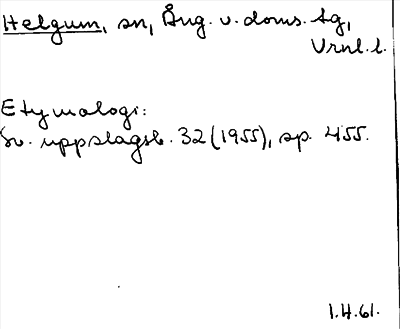 Helgum, sn, Ång. v. doms. tg,
Vrnl. l.
Etymologi:
Sv. uppslagsb. 32 (1955), sp. 455.
1.4.61.